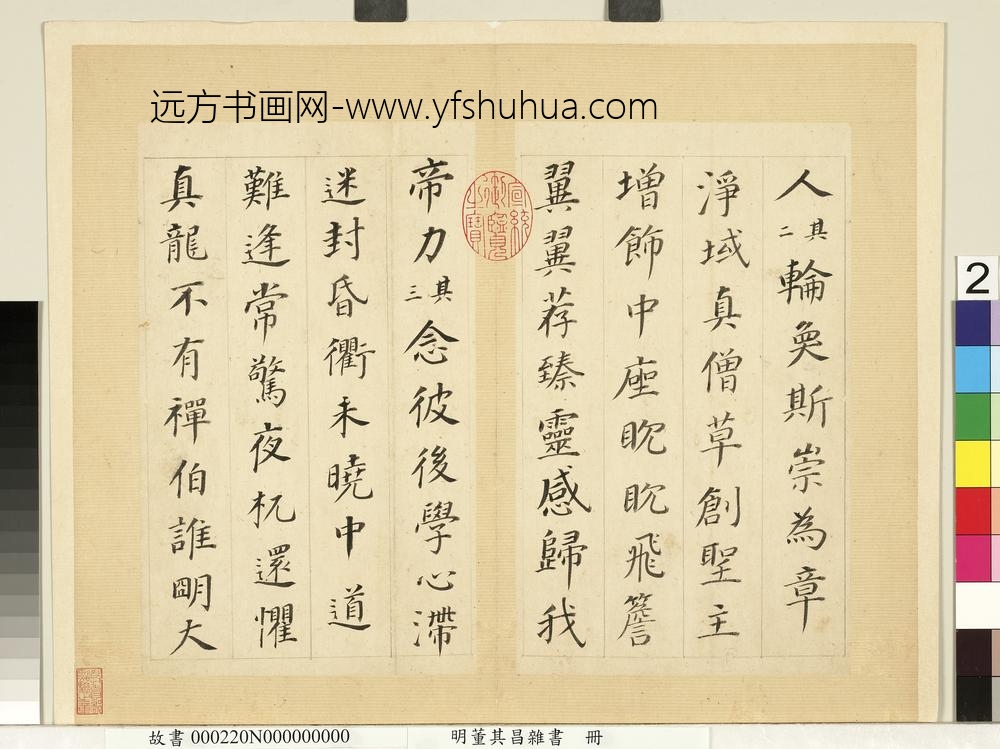 远方书画网-www.yfshuhua.com
人其二輪奐斯崇為章
淨域真僧草創聖主
增飾中座眈眈飛簷
翼翼荐臻靈感歸我
宣統御覽之寶
帝力其三念彼後學心滯
迷封昏衢未曉中道
難逢常驚夜杌還懼
真龍不有禪伯誰明大
2
故書 000220N000000000 明董其昌雜書 冊